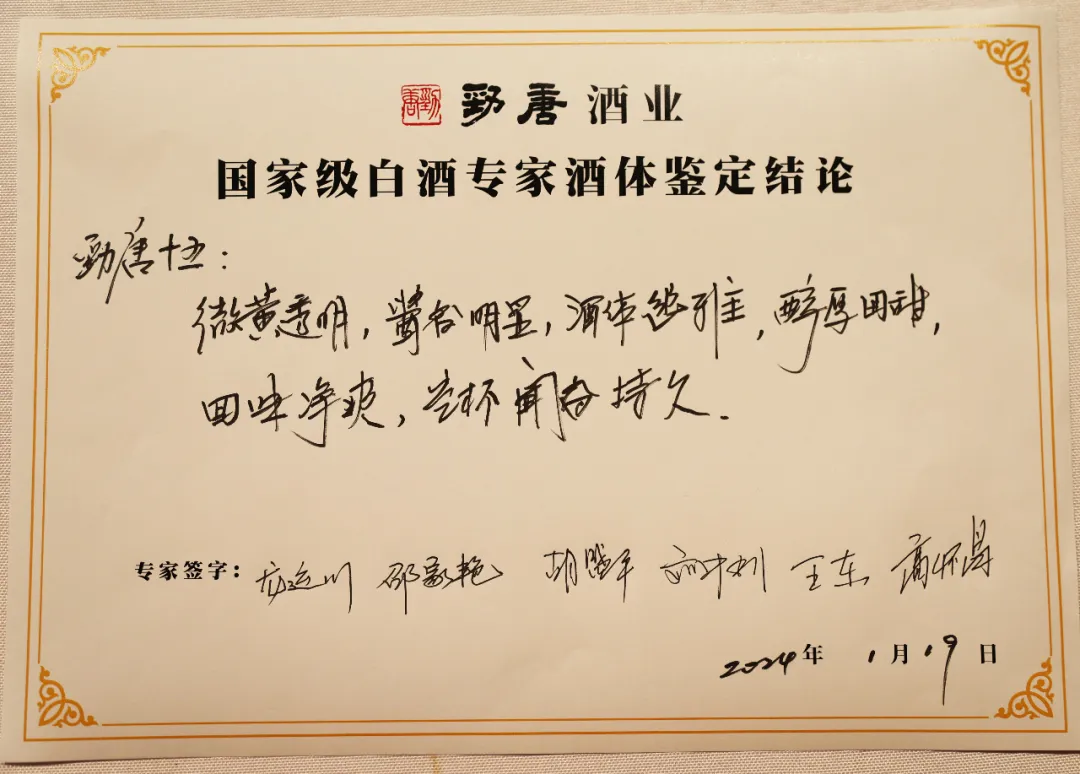 劲唐 勁唐 酒业
国家级白酒专家酒体鉴定结论
勁唐十五：
微黄透明，酱香明显，酒体幽雅，醇厚回甜，
回味净爽，空杯闻香持久.
专家签字： 邵 艳 胡 平 王东 高
2024年 1月19日